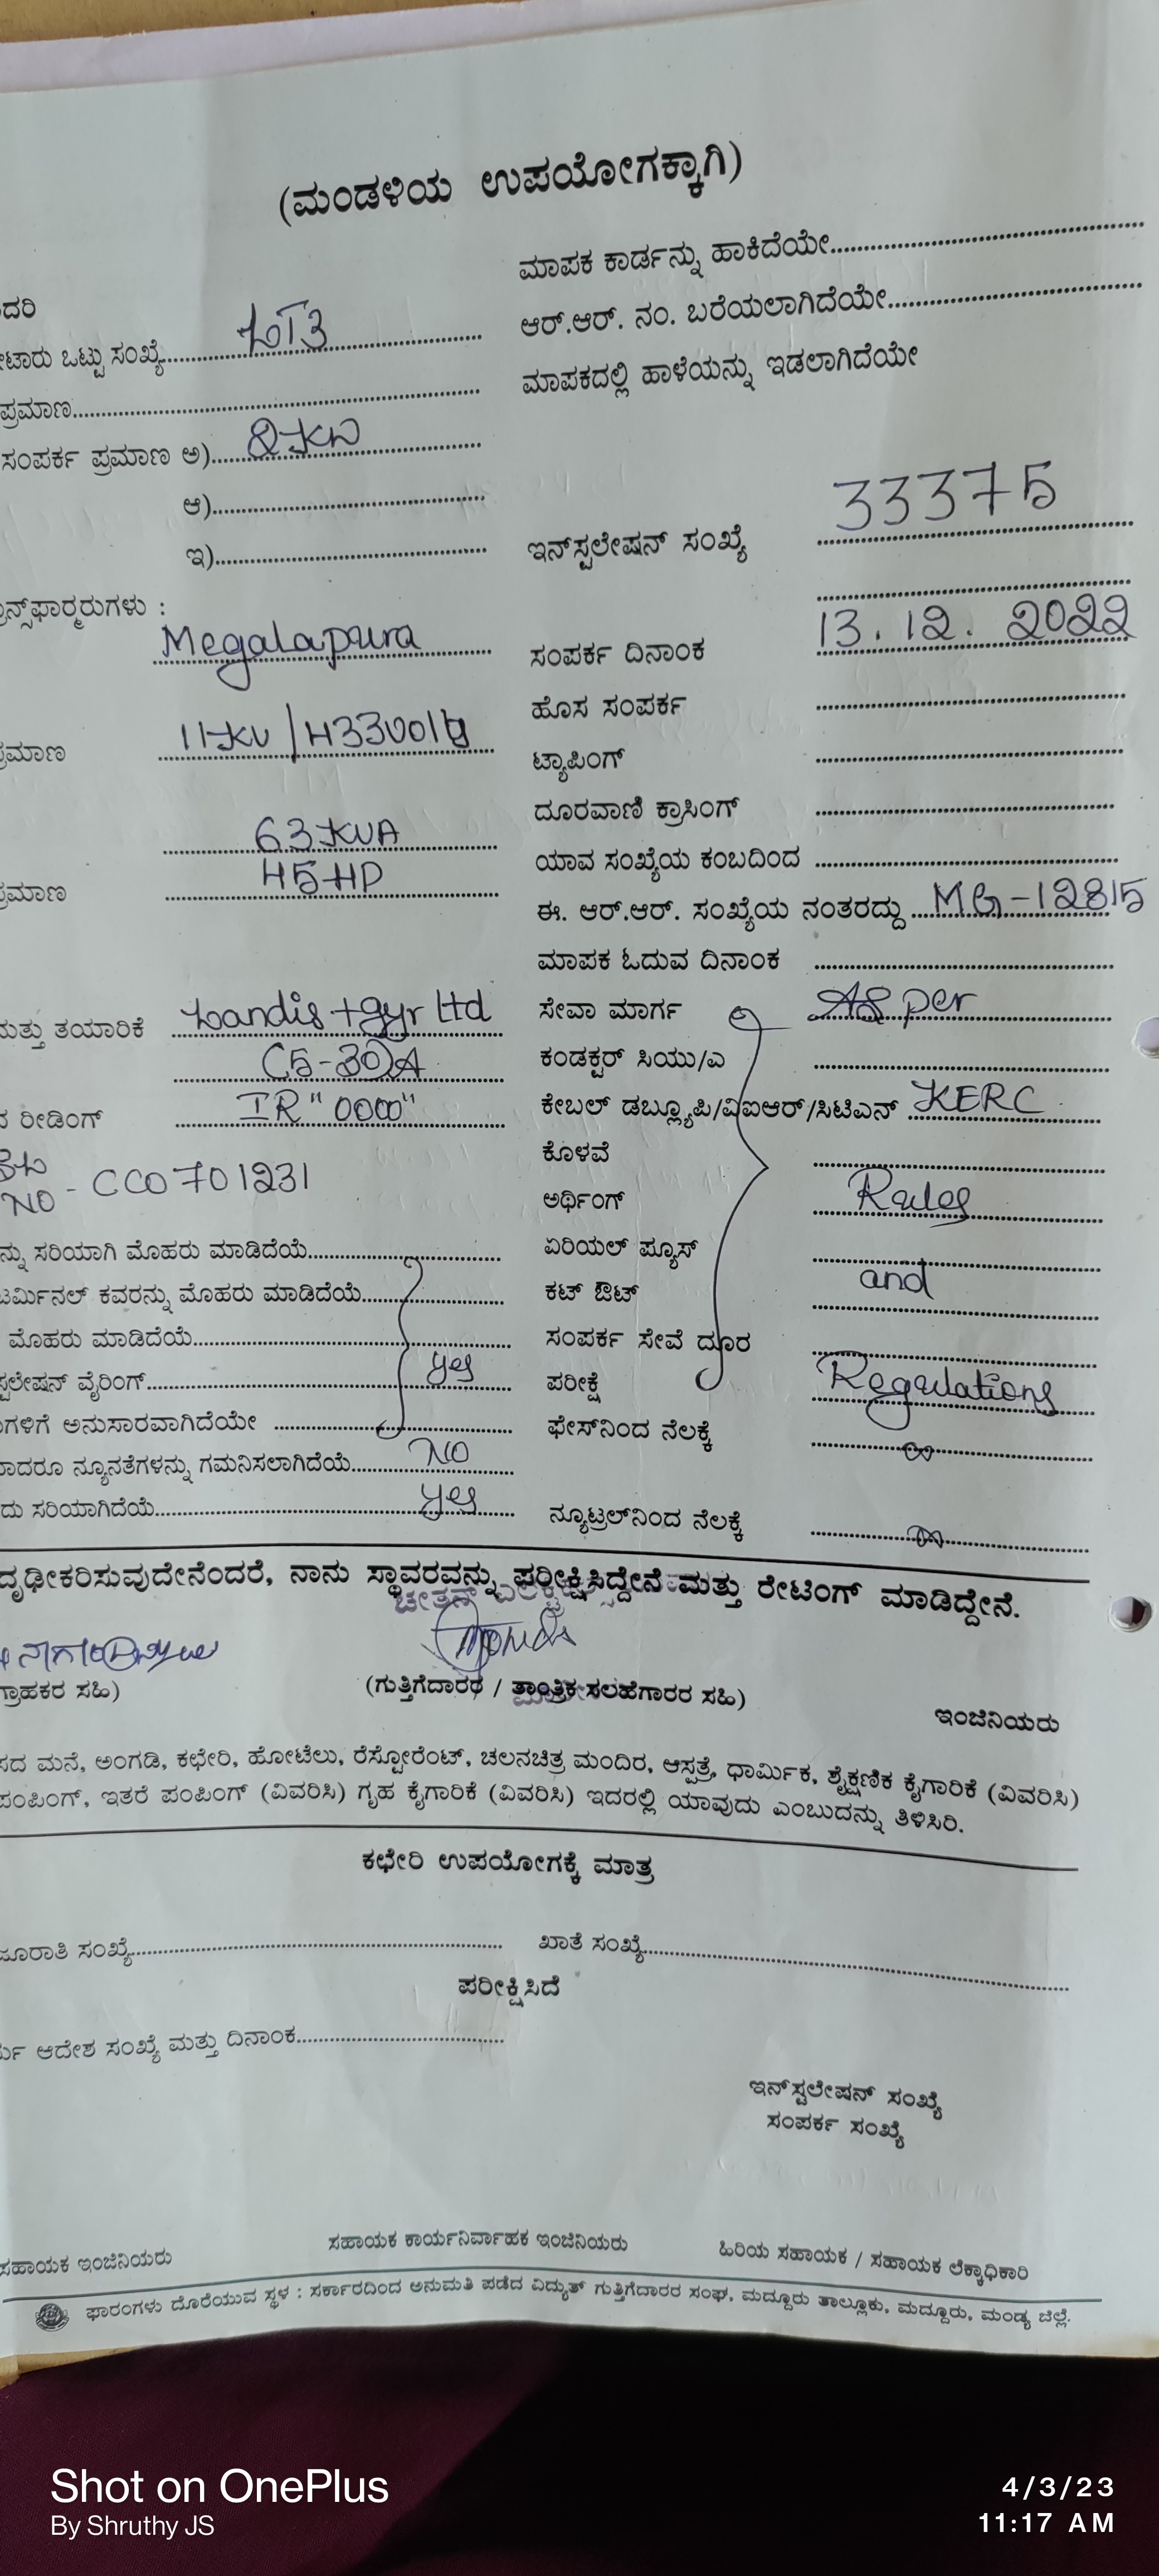 (ಮಂಡಳಿಯ ಉಪಯೋಗಕ್ಕಾಗಿ)
ಮಾಪಕ ಕಾರ್ಡನ್ನು ಹಾಕಿದೆಯೇ
ದರಿ
ಆರ್.ಆರ್. ನಂ. ಬರೆಯಲಾಗಿದೆಯೇ
ಟಾರು ಒಟ್ಟು ಸಂಖ್ಯೆ LT3
ಮಾಪಕದಲ್ಲಿ ಹಾಳೆಯನ್ನು ಇಡಲಾಗಿದೆಯೇ
ಪ್ರಮಾಣ
ಸಂಪರ್ಕ ಪ್ರಮಾಣ ಅ) 2KW
ಆ)
ಇನ್‌ಸ್ಟಲೇಷನ್ ಸಂಖ್ಯೆ 33375
ಇ)
ನ್ಸ್‌ಫಾರ್ಮರುಗಳು :
Megalapura
ಸಂಪರ್ಕ ದಿನಾಂಕ 13.12.2022
ಹೊಸ ಸಂಪರ್ಕ
ಪ್ರಮಾಣ 11KV/433Volts
ಟ್ಯಾಪಿಂಗ್
ದೂರವಾಣಿ ಕ್ರಾಸಿಂಗ್
63KVA
ಯಾವ ಸಂಖ್ಯೆಯ ಕಂಬದಿಂದ
ಪ್ರಮಾಣ 45HP
ಈ. ಆರ್.ಆರ್. ಸಂಖ್ಯೆಯ ನಂತರದ್ದು MG-12815
ಮಾಪಕ ಓದುವ ದಿನಾಂಕ
ಮತ್ತು ತಯಾರಿಕೆ Landis+gyr Ltd
ಸೇವಾ ಮಾರ್ಗ As per
C5-30A
ಕಂಡಕ್ಟರ್ ಸಿಯು/ಎ
ರೀಡಿಂಗ್ IR "0000"
ಕೇಬಲ್ ಡಬ್ಲ್ಯೂಪಿ/ವಿಐಆರ್/ಸಿಟಿಎನ್ KERC
ಕೊಳವೆ
NO - CC0701231
ಅರ್ಥಿಂಗ್ Rules
ನ್ನು ಸರಿಯಾಗಿ ಮೊಹರು ಮಾಡಿದೆಯೆ
ಏರಿಯಲ್ ಪ್ಯೂಸ್
ಟರ್ಮಿನಲ್ ಕವರನ್ನು ಮೊಹರು ಮಾಡಿದೆಯೆ
ಕಟ್ ಔಟ್ and
ಮೊಹರು ಮಾಡಿದೆಯೆ
ಸಂಪರ್ಕ ಸೇವೆ ದೂರ
ಸ್ಟಲೇಷನ್ ವೈರಿಂಗ್ yes
ಪರೀಕ್ಷೆ Regulations
ಗಳಿಗೆ ಅನುಸಾರವಾಗಿದೆಯೇ
ಫೇಸ್‌ನಿಂದ ನೆಲಕ್ಕೆ ∞
ನ್ಯೂನತೆಗಳನ್ನು ಗಮನಿಸಲಾಗಿದೆಯೆ NO
ದು ಸರಿಯಾಗಿದೆಯೆ yes
ನ್ಯೂಟ್ರಲ್‌ನಿಂದ ನೆಲಕ್ಕೆ ∞
ದೃಢೀಕರಿಸುವುದೇನೆಂದರೆ, ನಾನು ಸ್ಥಾವರವನ್ನು ಪರೀಕ್ಷಿಸಿದ್ದೇನೆ ಮತ್ತು ರೇಟಿಂಗ್ ಮಾಡಿದ್ದೇನೆ.
ಗ್ರಾಹಕರ ಸಹಿ)
(ಗುತ್ತಿಗೆದಾರರ / ತಾಂತ್ರಿಕ ಸಲಹೆಗಾರರ ಸಹಿ)
ಇಂಜಿನಿಯರು
ಸದ ಮನೆ, ಅಂಗಡಿ, ಕಛೇರಿ, ಹೋಟೆಲು, ರೆಸ್ಟೋರೆಂಟ್, ಚಲನಚಿತ್ರ ಮಂದಿರ, ಆಸ್ಪತ್ರೆ, ಧಾರ್ಮಿಕ, ಶೈಕ್ಷಣಿಕ ಕೈಗಾರಿಕೆ (ವಿವರಿಸಿ)
ಪಂಪಿಂಗ್, ಇತರೆ ಪಂಪಿಂಗ್ (ವಿವರಿಸಿ) ಗೃಹ ಕೈಗಾರಿಕೆ (ವಿವರಿಸಿ) ಇದರಲ್ಲಿ ಯಾವುದು ಎಂಬುದನ್ನು ತಿಳಿಸಿರಿ.
ಕಛೇರಿ ಉಪಯೋಗಕ್ಕೆ ಮಾತ್ರ
ಜೂರಾತಿ ಸಂಖ್ಯೆ
ಖಾತೆ ಸಂಖ್ಯೆ
ಪರೀಕ್ಷಿಸಿದೆ
ಆದೇಶ ಸಂಖ್ಯೆ ಮತ್ತು ದಿನಾಂಕ
ಇನ್‌ಸ್ಟಲೇಷನ್ ಸಂಖ್ಯೆ
ಸಂಪರ್ಕ ಸಂಖ್ಯೆ
ಸಹಾಯಕ ಇಂಜಿನಿಯರು
ಸಹಾಯಕ ಕಾರ್ಯನಿರ್ವಾಹಕ ಇಂಜಿನಿಯರು
ಹಿರಿಯ ಸಹಾಯಕ / ಸಹಾಯಕ ಲೆಕ್ಕಾಧಿಕಾರಿ
ಫಾರಂಗಳು ದೊರೆಯುವ ಸ್ಥಳ : ಸರ್ಕಾರದಿಂದ ಅನುಮತಿ ಪಡೆದ ವಿದ್ಯುತ್ ಗುತ್ತಿಗೆದಾರರ ಸಂಘ, ಮದ್ದೂರು ತಾಲ್ಲೂಕು, ಮದ್ದೂರು, ಮಂಡ್ಯ ಜಿಲ್ಲೆ.
Shot on OnePlus
By Shruthy JS
4/3/23
11:17 AM